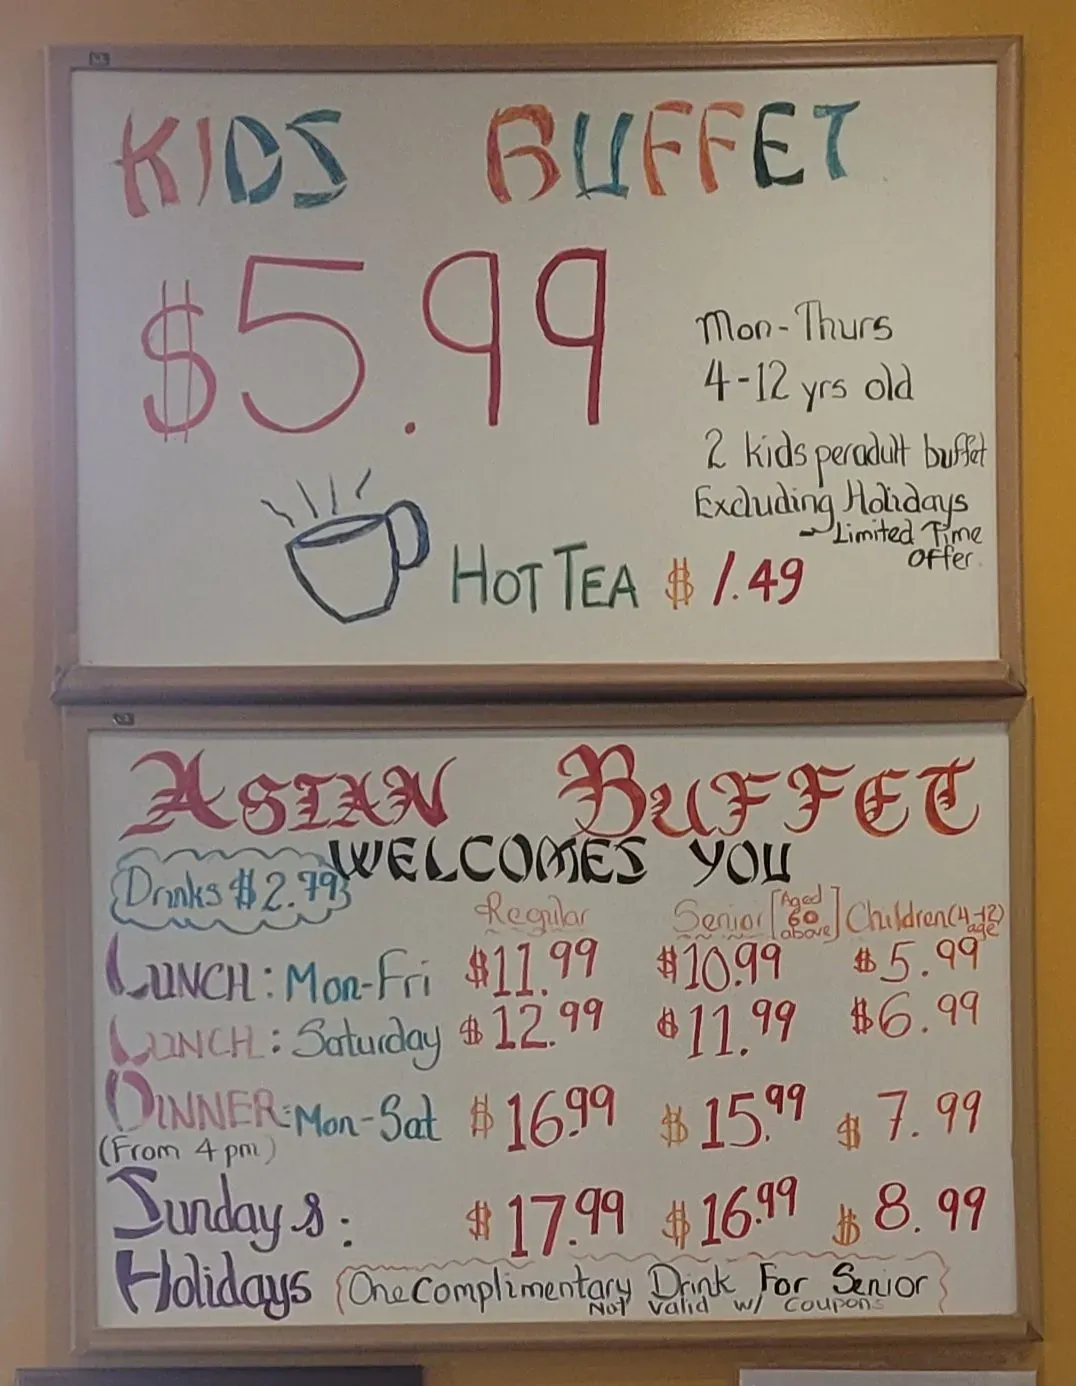 KIDS BUFFET
$5.99
Mon-Thurs
4-12 yrs old
2 kids per adult buffet
Excluding Holidays
- Limited Time
Offer.
HOT TEA $1.49
ASIAN BUFFET
WELCOMES YOU
Drinks $2.79
Regular Senior [Aged 60 above] Children (4-12) age
LUNCH: Mon-Fri $11.99 $10.99 $5.99
LUNCH: Saturday $12.99 $11.99 $6.99
DINNER: Mon-Sat $16.99 $15.99 $7.99
(From 4 pm)
Sundays: $17.99 $16.99 $8.99
Holidays {One Complimentary Drink For Senior}
Not valid w/ coupons